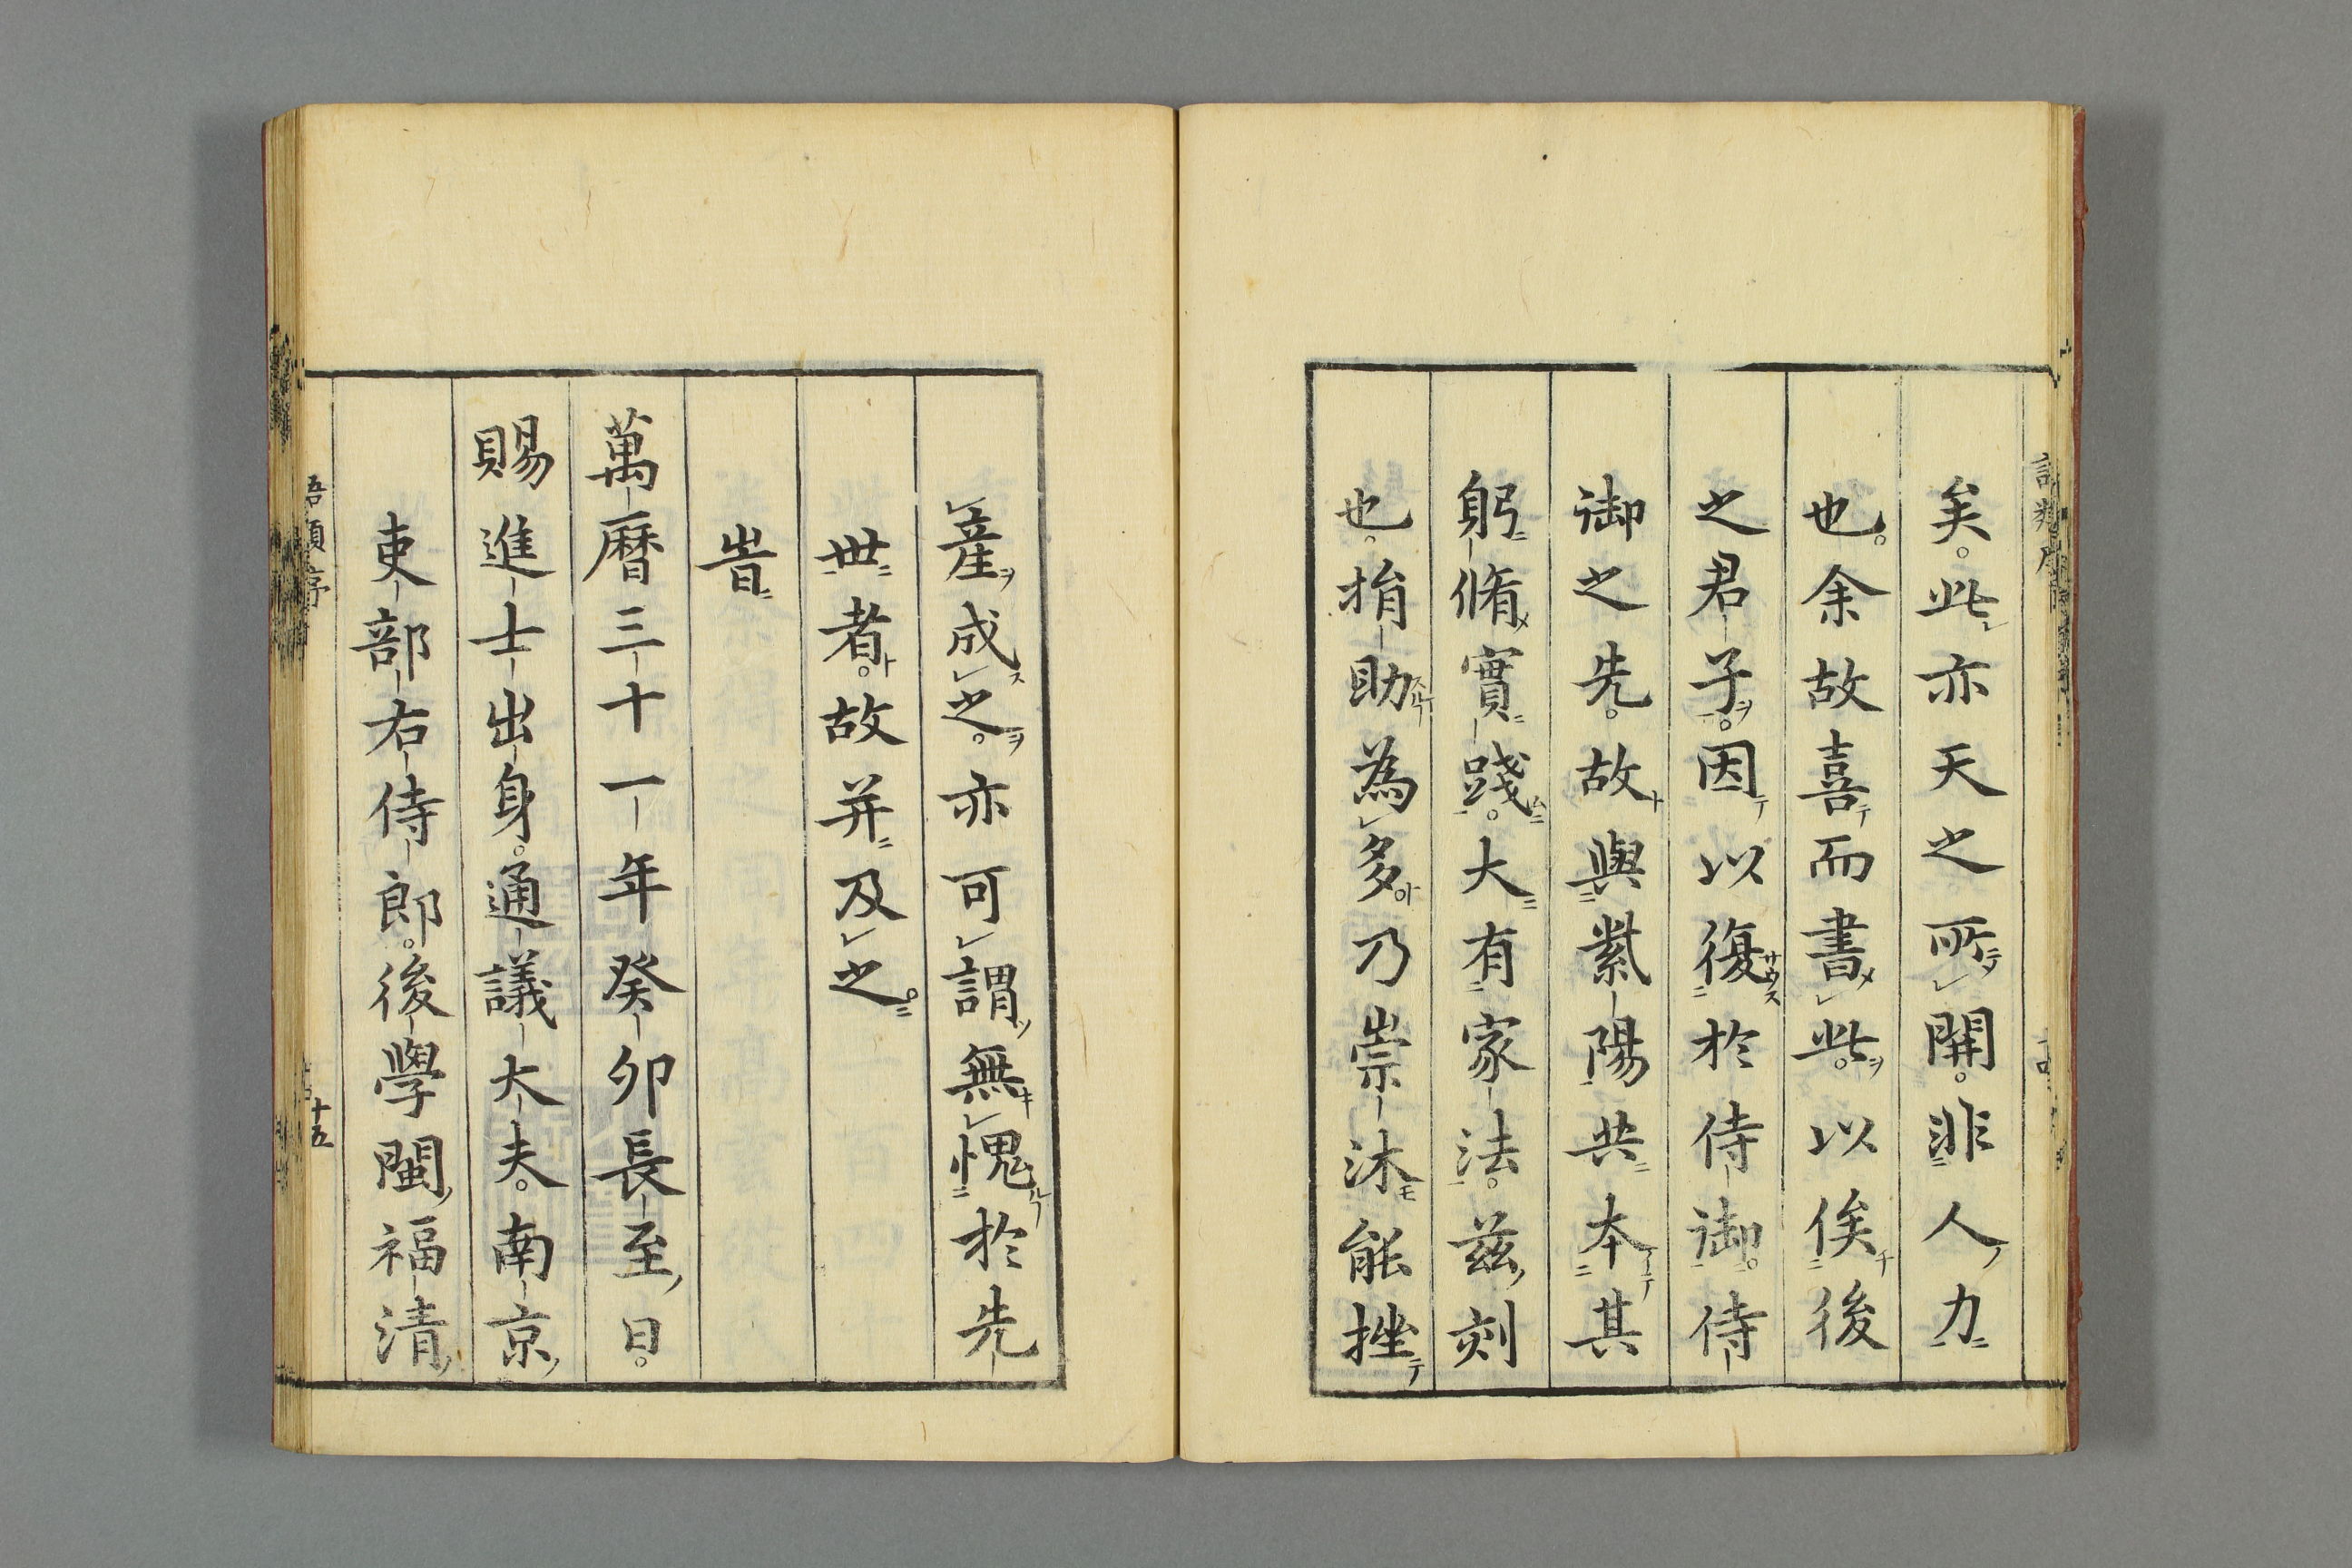 矣。此亦天之所開。非人力
也。余故喜而書此。以俟後
之君子。因以復於侍御。侍
御之先。故與紫陽共本其
躬脩實踐。大有家法。茲刻
也。捐助為多乃崇沐能挫
產成之。亦可謂無愧於先
世者。故并及之。
旹
萬曆三十一年癸卯長至日。
賜進士出身。通議大夫。南京
吏部右侍郎。後學閩福清
語類序
十五